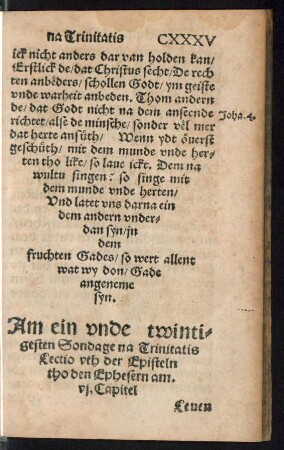 na Trinitatis CXXXV
ick nicht anders dar van holden kan/
Erstlick de/dat Christus secht/De rech
ten anbêders/schollen Godt/ym geiste
vnde warheit anbeden. Thom andern
de/dat Godt nicht na dem anseende
richtet/alse de minsche/sonder vêl mer
Joha.4.
dat herte ansüth/ Wenn ydt ôuerst
geschüth/mit dem munde vnde her-
ten tho like/so laue ickt. Dem na
wultu singen: so singe mit
dem munde vnde herten/
Vnd latet vns darna ein
dem andern vnder-
dan syn/in
dem
fruchten Gades/so wert allent
wat wy don/Gade
angeneme
syn.
Am ein vnde twinti-
gesten Sondage na Trinitatis
Lectio vth der Episteln
tho den Ephesern am.
vj. Capitel
Leuen